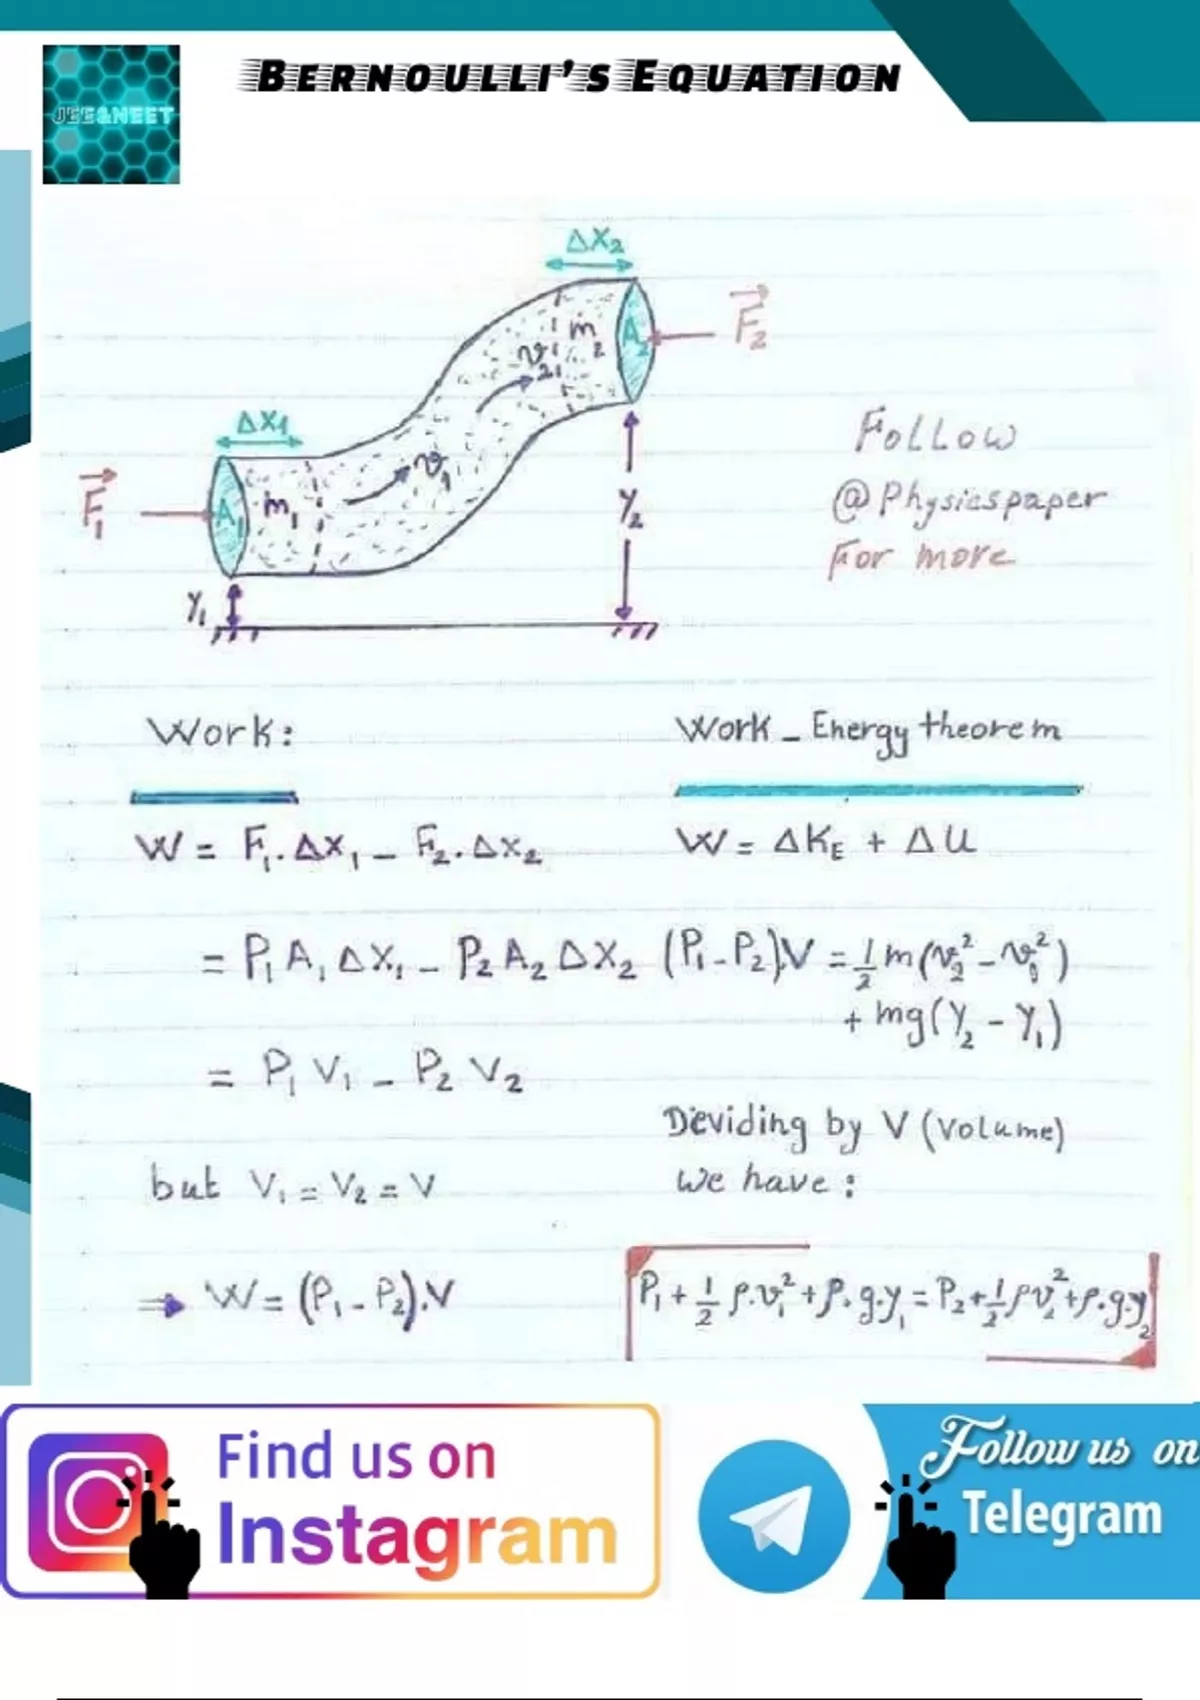 BERNOULLI'S EQUATION
JEE&NEET
ΔX₂
F₂
m₂
A₂
v₂
ΔX₁
F₁
A₁
m₁
v₁
Y₂
Y₁
Follow
@Physicspaper
For more
Work:
W = F₁.ΔX₁ - F₂.ΔX₂
= P₁ A₁ ΔX₁ - P₂ A₂ ΔX₂
= P₁ V₁ - P₂ V₂
but V₁ = V₂ = V
⇒ W = (P₁ - P₂).V
Work - Energy theorem
W = ΔK_E + ΔU
(P₁ - P₂).V = 1/2 m(v₂² - v₁²)
+ mg(Y₂ - Y₁)
Deviding by V (Volume)
we have:
P₁ + 1/2 ρ.v₁² + ρ.g.y₁ = P₂ + 1/2 ρv₂² + ρ.g.y₂
Find us on
Instagram
Follow us on
Telegram